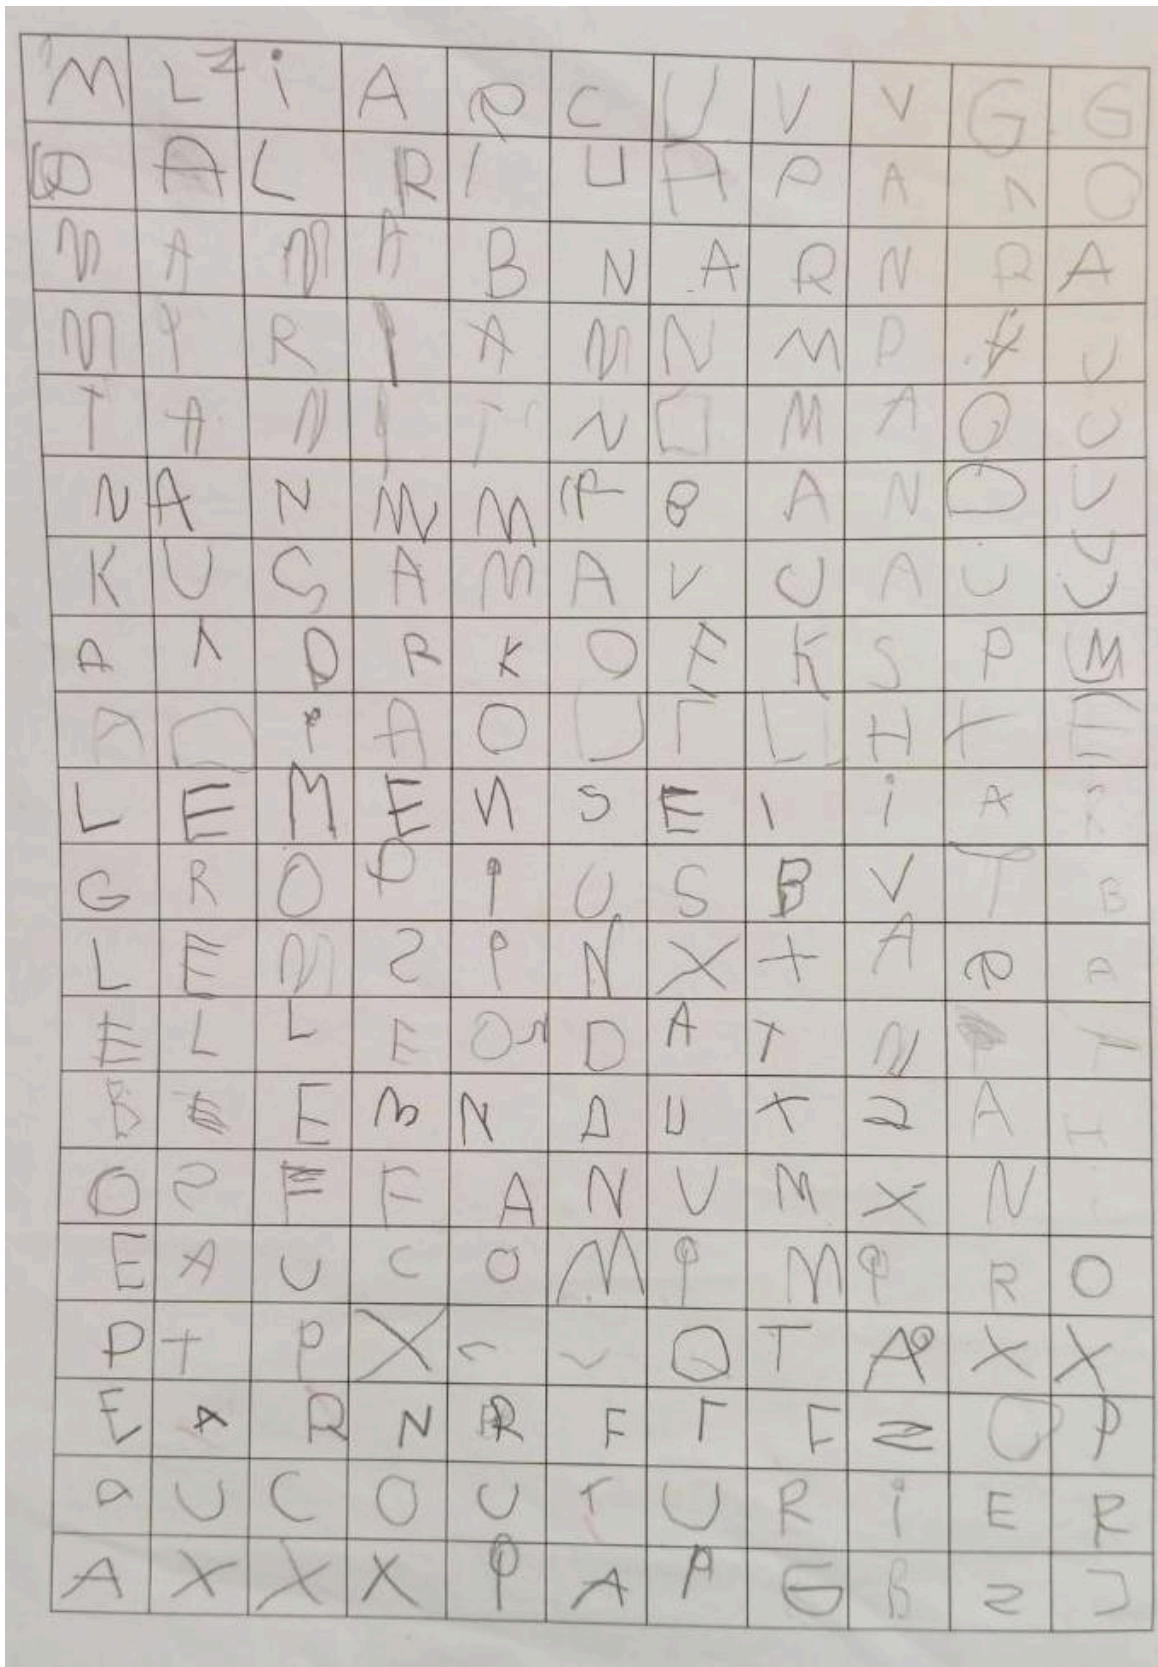 M L Z i A R C U V V G G
Q A L R I U A P A N O
M A M A B N A R N R A
M I R I A M N M P A U
T A N I T N O M A O U
N A N M M A B A N D U
K U S A M A V U A U U
A A D R K O E K S P M
A O P A O U T L H T E
L E M E N S E I i A R
G R O P I U S B V T B
L E M S P N X + A R A
E L L E O N D A T N T
B E E M N A U X 2 A H
O S E F A N U M X N
E A U C O M I M I R O
P + P X Q T A X X
E A R N R F T F 2 O P
A U C O U T U R i E R
A X X X P A P G B 2 J